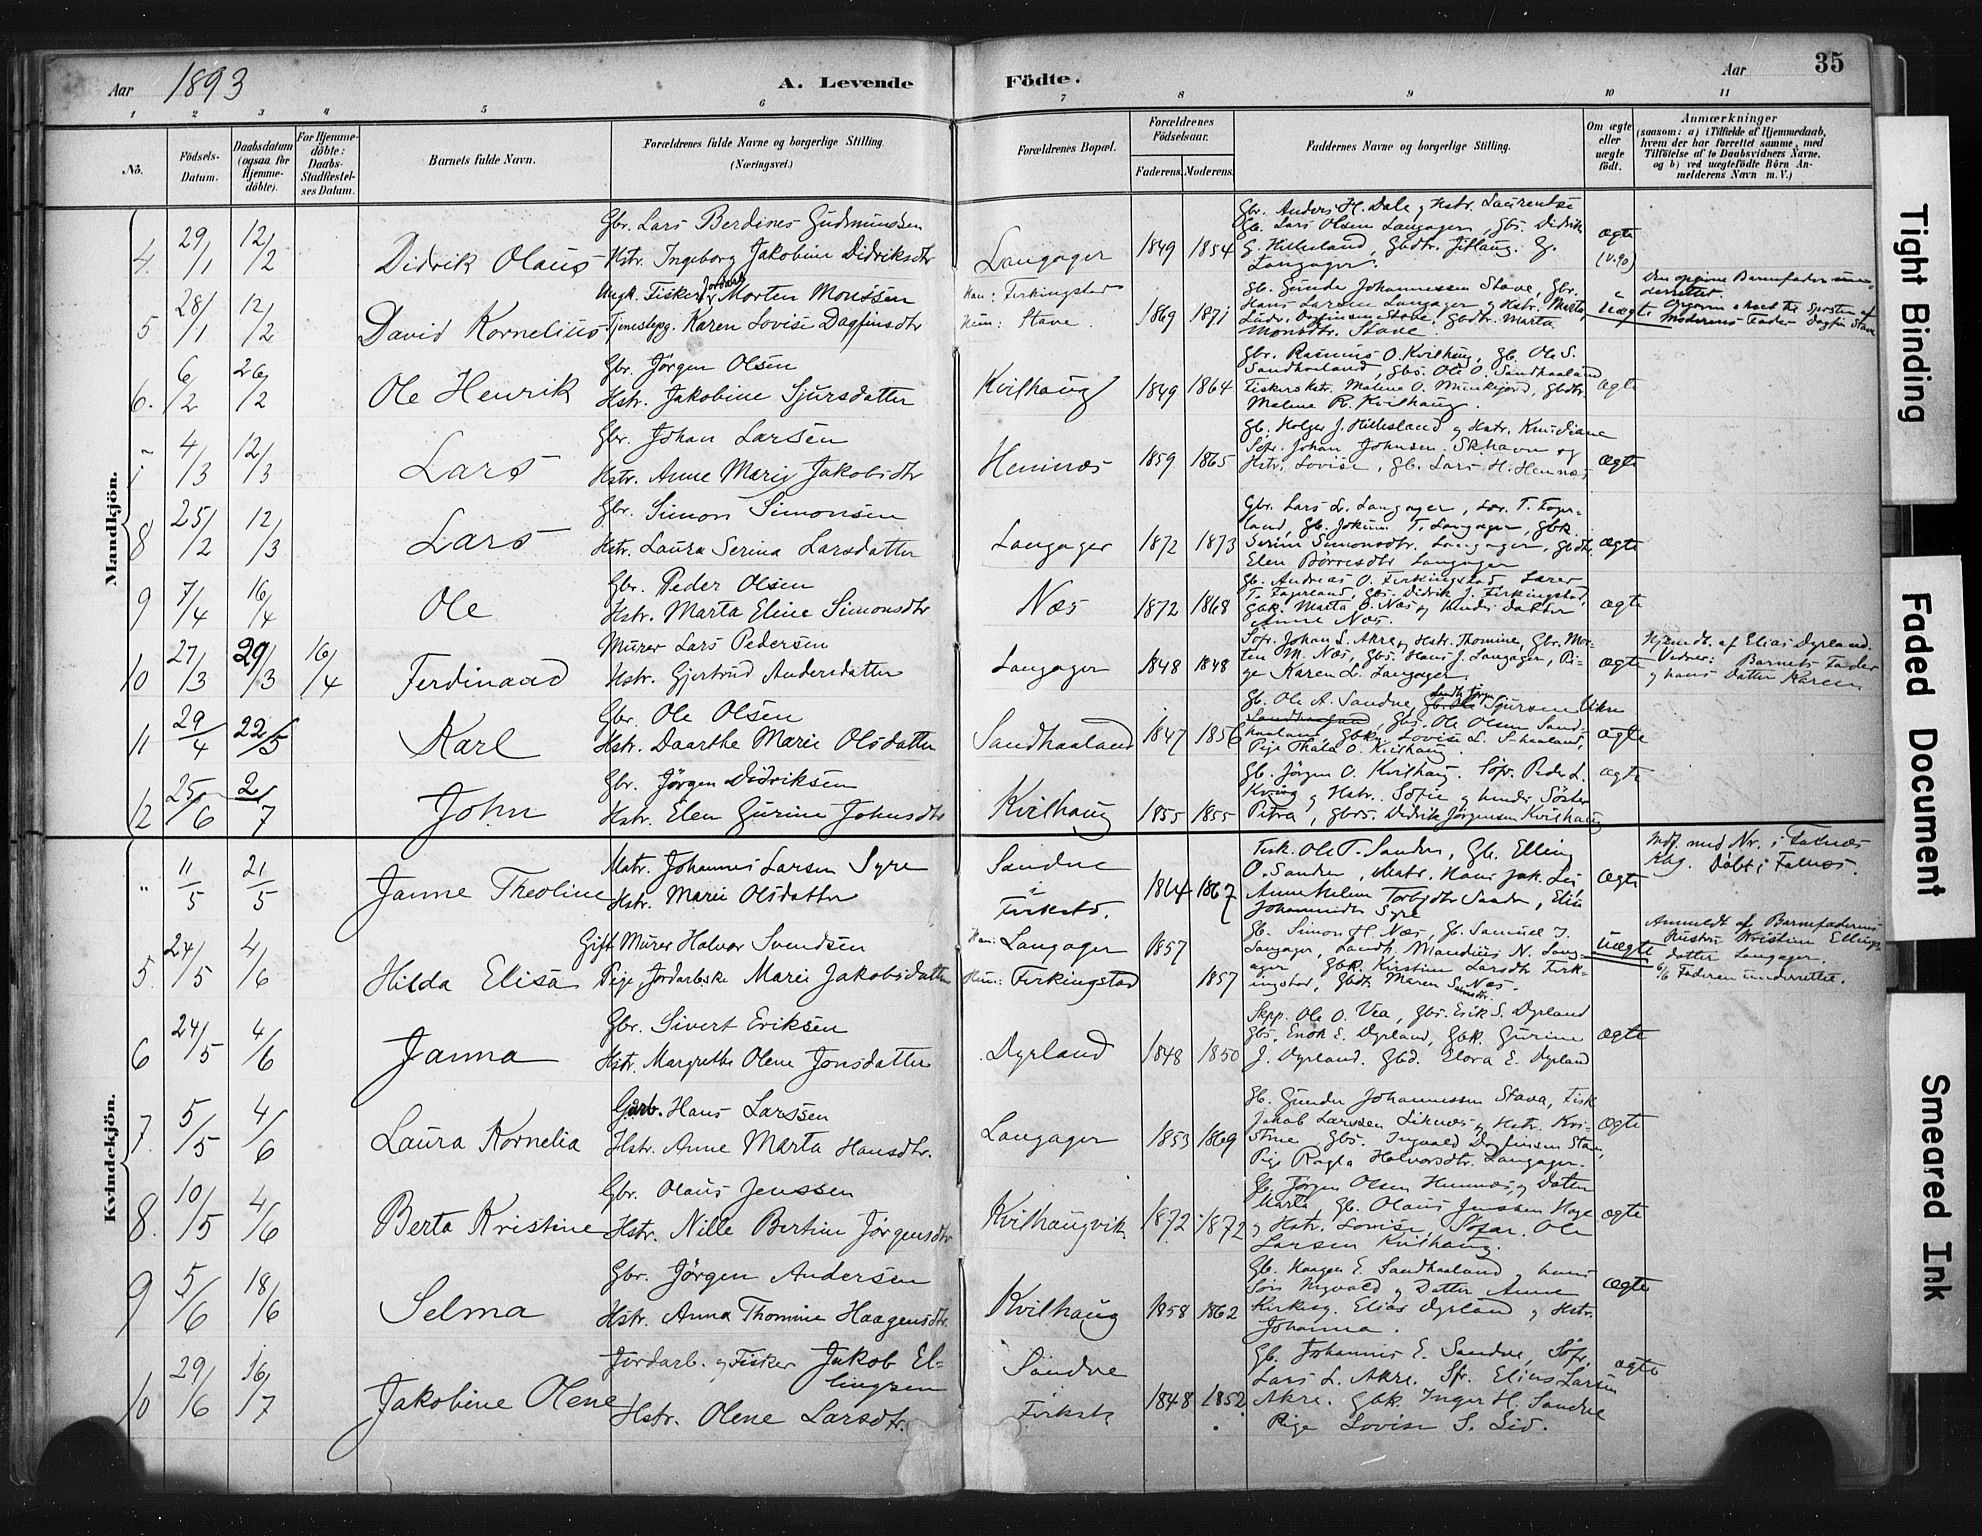 Aar 1893
A. Levende
Födte.
Aar
35
1 2 3 4 5 6 7 8 9 10 11
No.
Födsels-Datum.
Daabsdatum (ogsaa for Hjemme-döbte).
For Hjemme-döbte: Daabs-Stadfæstel-ses Datum.
Barnets fulde Navn.
Forældrenes fulde Navne og borgerlige Stilling. (Næringsvei.)
Forældrenes Bopæl.
Forældrenes Födselsaar.
Faderens. Moderens.
Faddernes Navne og borgerlige Stilling.
Om ægte eller uægte födt.
Anmærkninger
(saasom: a) i Tilfælde af Hjemmedaab,
hvem der har forrettet samme, med
Tilföielse af to Daabsvidners Navne,
og b) ved uægtefödte Börn An-
melderens Navn m. V.)
Mandkjön.
4. 29/1 12/2 Didrik Olaus
Gbr. Lars Berdines Gudmundsen
Hstr. Ingeborg Jakobine Didriksdtr
Langager 1849 1854
Gbr. Anders H. Dale og Hstr. Laurentse
Gb. Lars Olsen Langager, Gbs. Didrik
G. Hillesland, Gbdtr.
Langager.
ægte
5 28/1 12/2 David Kornelius
Ungk. Fisker Jordarb. Morten Monssen
Tjenestepg. Karen Lovise Dagfinsdtr
Han: Ferkingstad
Hun: Stave. 1869 1871
Gb. Gunde Johannessen Stave, Gbr.
Hans Larsen Langager og Hstr. Marta,
Ludv. Dagfinsen Stave, Gbdtr. Marta
Monsdtr. Stave
Uægte
Den opgivne Barnefader under-
derrettet.
Moderens Fader Dagfin Stave
6. 6/2 26/2 Ole Henrik
Gbr. Jörgen Olsen
Hstr. Jakobine Sjursdatter
Kvilhaug 1849 1864
Gbr. Rasmus O. Kvilhaug, Gb. Ole S.
Sandhaaland, Gbs. Ole O. Sandhaaland
Fiskerskstr. Malene O. Munkejord, Gbdtr.
Malene R. Kvilhaug.
ægte
7 4/3 12/3 Lars
Gbr. Johan Larsen
Hstr. Anne Marie Jakobsdtr
Hemnæs 1859 1865
Gb. Holger J. Hillesland og Hstr. Knudiane
Söfr. Johan Johnsen Skhavn og
Hstr. Lovise, Gb. Lars H. Hemnæs
ægte
8 25/2 12/3 Lars
Gbr. Simon Simonsen
Hstr. Laura Serina Larsdatter
Langager 1872 1873
Gbr. Lars L. Langager, Lær. T. Fager-
land, Gb. Jokum T. Langager, Gbk
Serine Simonsdtr. Langager, Gbdtr.
Elen Börresdtr Langager
ægte
9 7/4 16/4 Ole
Gbr. Peder Olsen
Hstr. Marta Eline Simonsdtr
Næs 1872 1868
Gb. Andreas O. Ferkingstad, Lærer
T. Fagerland, Gbs. Didrik J. Ferkingstad,
Gbk. Marta O. Næs og hendes datter
Anne Næs.
ægte
10 27/3 29/3 16/4 Ferdinand
Murer Lars Pedersen
Hstr. Gjertrud Andersdatter
Langager 1848 1848
Söfr. Johan L. Akre og Hstr. Thomine, Gbr. Mor-
ten M. Næs, Gbs. Hans J. Langager, Pi-
ge Karen L. Langager
ægte
Hjemdt. af Elias Dyrland.
Vidner: Barnets Fader
og hans datter Karen.
11 29/4 22/5 Karl
Gbr. Ole Olsen
Hstr. Daarthe Marie Olsdatter
Sandhaaland 1847 1856
Gb. Ole A. Sandve, Sjursen
Sandhaaland, Gbs. Ole Olsen Sand-
haaland, Gbk. Lovise L. S-haaland,
Pige Thala O. Kvilhaug.
ægte
12 25/6 2/7 John
Gbr. Jörgen Didriksen
Hstr. Elen Gurine Johnsdtr
Kvilhaug 1855 1855
Gb. Jörgen O. Kvilhaug. Söfr. Peder L.
og Hstr. Sofie og hendes Söster
Petra, Gbrs. Didrik Jörgensen Kvilhaug
ægte
Kvindekjön.
" 11/5 21/5 Janne Theoline
Matr. Johannes Larsen Syre
Hstr. Marie Olsdatter
Sandve
Firkstd. 1864 1867
Fisk. Ole T. Sandve, Gb. Elling
O. Sandve, Matr. Hans Jak. Lie
Anne Helene Torbjdtr Sandve, Elen
Johannesdtr Syre
ægte
Mdf. med Nr. i Falnæs
Kbg. Döbt i Falnæs.
5. 24/5 4/6 Hilda Elisa
Gift Murer Halvor Svendsen
Pige Jordarbske Marie Jakobsdatter
Han: Langager 1857
Hun: Ferkingstad 1857
Gb. Simon H. Næs, Gb. Samuel T.
Langager, Landh. Mandius N. Lang-
ager, Gbk. Kirstine Larsdtr Ferk-
ingstad, Gbdtr Maren S. Næs.
uægte
Anmeldt af Barnefaderens
Hustru Kristine Ellings-
datter Langager.
6/6 Faderen underrettet.
6 24/5 4/6 Janna
Gbr. Sivert Eriksen
Hstr. Margrethe Olene Jonsdatter
Dyrland 1848 1850
Skpp. Ole O. Vea, Gbs. Erik S. Dyrland
Gbs. Enok E. Dyrland, Gbk. Gurine
J. Dyrland. Gbd. Elora E. Dyrland
ægte
7. 5/5 4/6 Laura Kornelia
Garb. Hans Larssen
Hstr. Anne Marta Hansdtr.
Langager 1853 1869
Gb. Gunder Johannessen Stava, Fisk
Jakob Larssen Liknæs og Hstr. Kri-
stine, Gbs. Ingvald Dagfinsen Stave,
Pige Ragla Halvorsdtr. Langager.
ægte
8. 10/5 4/6 Berta Kristine
Gbr. Olaus Jenssen
Hstr. Nille Bertine Jörgensdtr
Kvilhaugvik 1872 1872
Gb. Jörgen Olsen Hemnæs og Datter
Marta, Gb. Olaus Jenssen Hage
og Hstr. Lovise, Söfar. Ole
Larsen Kvilhaug.
ægte
9 5/6 18/6 Selma
Gbr. Jörgen Andersen
Hstr. Anna Thomine Haagensdtr.
Kvilhaug 1858 1862
Gb. Haagen E. Sandhaaland, hans
Sön Ingvald og Datter Anne
Kirkesg. Elias Dyrland og Hstr.
Johanna.
ægte
10 29/6 16/7 Jakobine Olene
Jordarb. og Fisker Jakob El-
lingsen
Hstr. Olene Larsdtr.
Sandve
Firkst. 1848 1852
Gb. Johannes E. Sandve, Söfr.
Lars L. Akre. Sfr. Elias Larsen
Akre. Gbk. Inger H. Sandve
Pige Lovise S. Lid.
ægte
Tight Binding
Faded Document
Smeared Ink